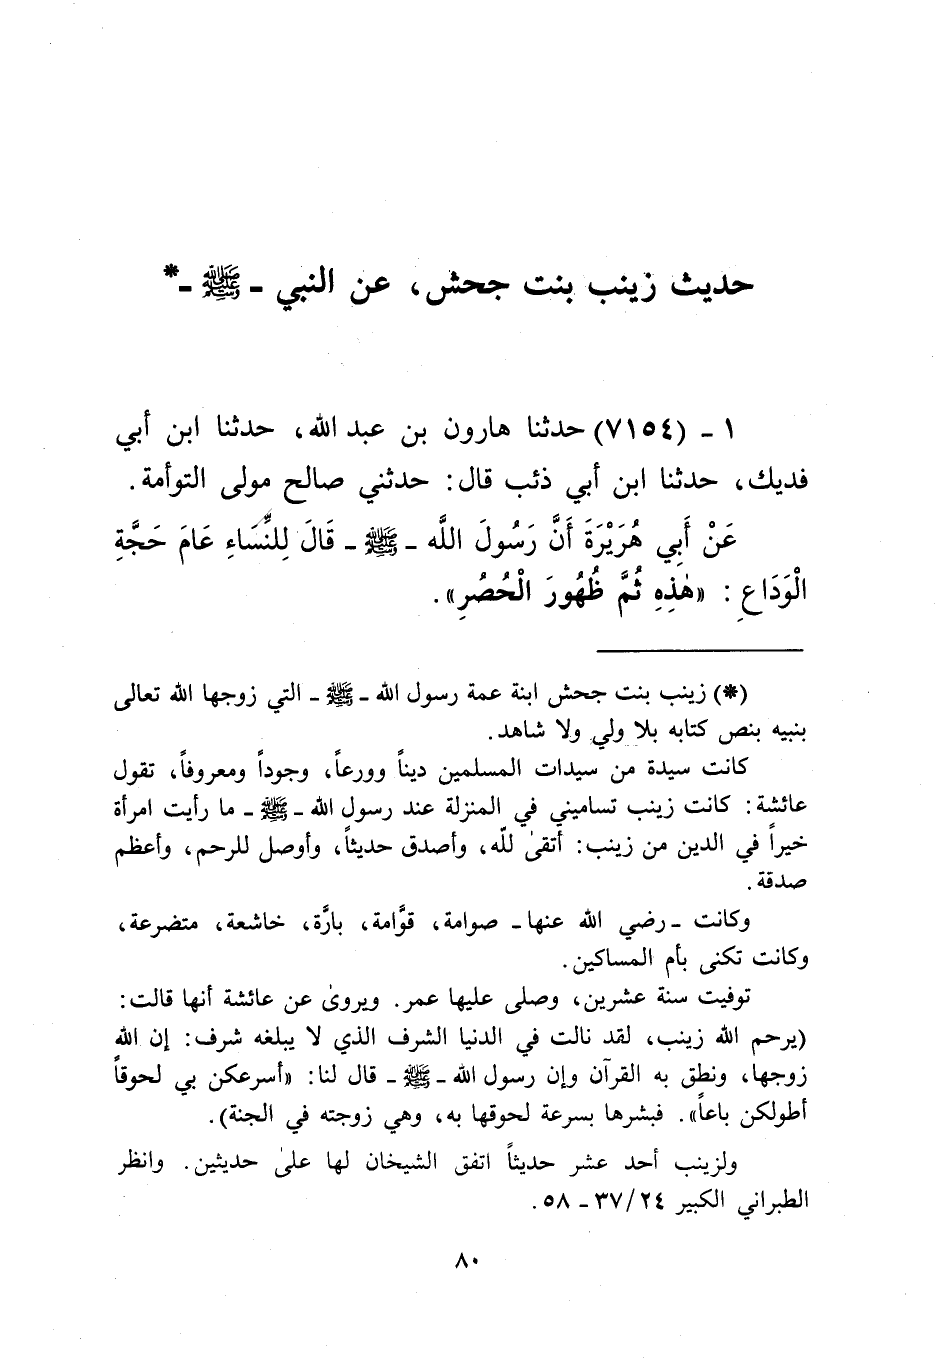 حديث زينب بنت جحش، عن النبي ـ ﷺ ـ*
١ ـ (٧١٥٤) حدثنا هارون بن عبد الله، حدثنا ابن أبي
فديك، حدثنا ابن أبي ذئب قال: حدثني صالح مولى التوأمة.
عَنْ أَبِي هُرَيْرَةَ أَنَّ رَسُولَ اللَّه ـ ﷺ ـ قَالَ لِلنِّسَاءِ عَامَ حَجَّةِ
الْوَدَاعِ: «هٰذِهِ ثُمَّ ظُهُورَ الْحُصُرِ».
(*) زينب بنت جحش ابنة عمة رسول الله ـ ﷺ ـ التي زوجها الله تعالى
بنبيه بنص كتابه بلا ولي ولا شاهد.
كانت سيدة من سيدات المسلمين ديناً وورعاً، وجوداً ومعروفاً، تقول
عائشة: كانت زينب تساميني في المنزلة عند رسول الله ـ ﷺ ـ ما رأيت امرأة
خيراً في الدين من زينب: أتقىٰ للّه، وأصدق حديثاً، وأوصل للرحم، وأعظم
صدقة.
وكانت ـ رضي الله عنها ـ صوامة، قوَّامة، بارَّة، خاشعة، متضرعة،
وكانت تكنى بأم المساكين.
توفيت سنة عشرين، وصلى عليها عمر. ويروىٰ عن عائشة أنها قالت:
(يرحم الله زينب، لقد نالت في الدنيا الشرف الذي لا يبلغه شرف: إن الله
زوجها، ونطق به القرآن وإن رسول الله ـ ﷺ ـ قال لنا: «أسرعكن بي لحوقاً
أطولكن باعاً». فبشرها بسرعة لحوقها به، وهي زوجته في الجنة).
ولزينب أحد عشر حديثاً اتفق الشيخان لها علىٰ حديثين. وانظر
الطبراني الكبير ٣٧/٢٤ ـ ٥٨.
٨٠